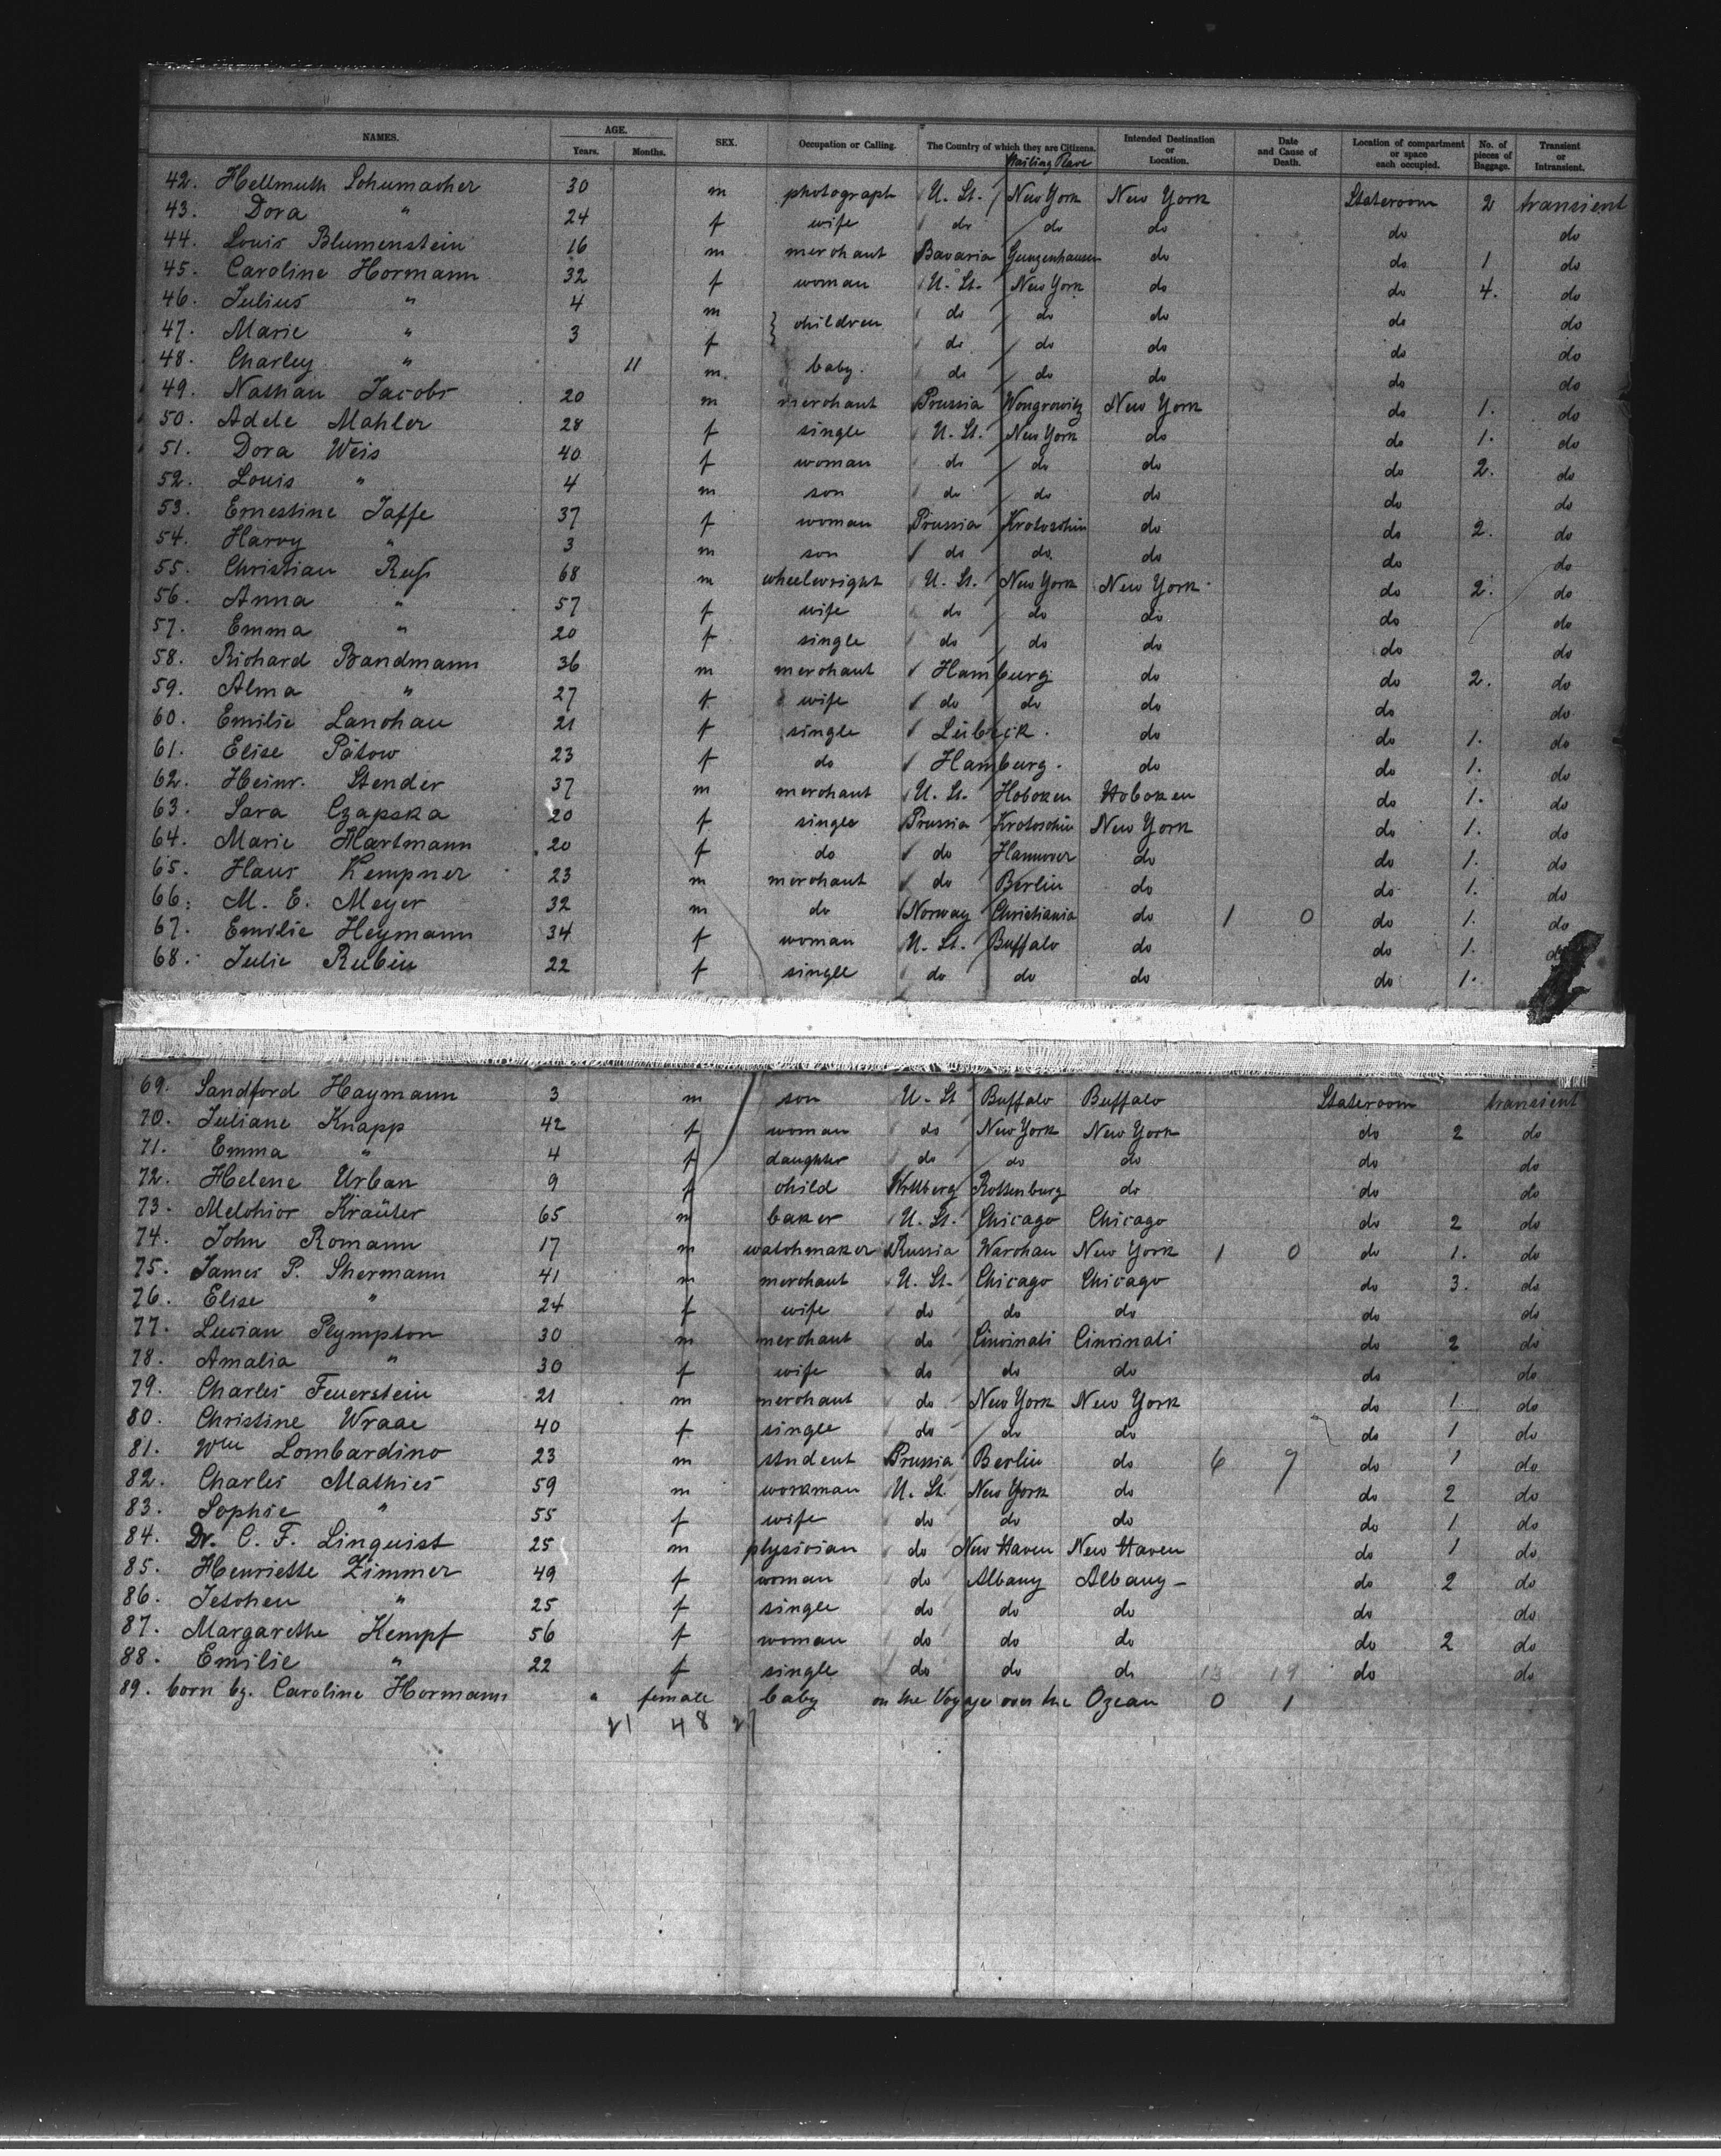 NAMES. AGE. Years. Months. SEX. Occupation or Calling. The Country of which they are Citizens. Intended Destination or Location. Date and Cause of Death. Location of compartment or space each occupied. No. of pieces of Baggage. Transient or Intransient.
42. Hellmuth Schumacher 30 m photograph U. St. New York New York Stateroom 2 transient
43. Dora " 24 f wife do do do do do
44. Louis Blumenstein 16 m merchant Bavaria Gunzenhausen do do 1 do
45. Caroline Hormann 32 f woman U. St. New York do do 4. do
46. Julius " 4 m } children do do do do do
47. Marie " 3 f do do do do do
48. Charley " 11 m baby. do do do do do
49. Nathan Jacobs 20 m merchant Prussia Wongrowitz New York do 1. do
50. Adele Mahler 28 f single U. St. New York do do 1. do
51. Dora Weis 40 f woman do do do do 2. do
52. Louis " 4 m son do do do do do
53. Ernestine Jaffe 37 f woman Prussia Krotoschin do do 2. do
54. Harry " 3 m son do do do do do
55. Christian Ruß 68 m wheelwright U. St. New York New York do 2. do
56. Anna " 57 f wife do do do do do
57. Emma " 20 f single do do do do do
58. Richard Bandmann 36 m merchant Hamburg do do 2. do
59. Alma " 27 f wife do do do do do
60. Emilie Lanchau 21 f single Lübeck. do do 1. do
61. Elise Pätow 23 f do Hamburg. do do 1. do
62. Heinr. Stender 37 m merchant U. St. Hoboken Hoboken do 1. do
63. Sara Czapska 20 f single Prussia Krotoschin New York do 1. do
64. Marie Hartmann 20 f do do Hannover do do 1. do
65. Hans Kempner 23 m merchant do Berlin do do 1. do
66. M. E. Meyer 32 m do Norway Christiania do 1 0 do 1. do
67. Emilie Heymann 34 f woman U. St. Buffalo do do 1. do
68. Julie Rubin 22 f single do do do do 1.
69. Sandford Haymann 3 m son U. St Buffalo Buffalo Stateroom transient
70. Juliane Knapp 42 f woman do New York New York do 2 do
71. Emma " 4 f daughter do do do do do
72. Helene Urban 9 f child Wrttberg Rottenburg do do do
73. Melchior Kräuter 65 m baker U. St. Chicago Chicago do 2 do
74. John Romann 17 m watchmaker Russia Warchau New York 1 0 do 1. do
75. James P. Shermann 41 m merchant U. St. Chicago Chicago do 3. do
76. Elise " 24 f wife do do do do do
77. Lucian Plympton 30 m merchant do Cincinati Cincinati do 2 do
78. Amalia " 30 f wife do do do do do
79. Charles Feuerstein 21 m merchant do New York New York do 1 do
80. Christine Wraae 40 f single do do do do 1 do
81. Wm Lombardino 23 m student Prussia Berlin do 6 9 do 1 do
82. Charles Mathies 59 m workman U. St. New York do do 2 do
83. Sophie " 55 f wife do do do do 1 do
84. Dr. C. F. Linquist 25 m physician do New Haven New Haven do 1 do
85. Henriette Zimmer 49 f woman do Albany Albany - do 2 do
86. Jetchen " 25 f single do do do do do
87. Margarethe Kempf 56 f woman do do do do 2 do
88. Emilie " 22 f single do do do 13 19 do do
89. born by. Caroline Hormann " female baby on the Voyage over the Ozean 0 1
21 48 27